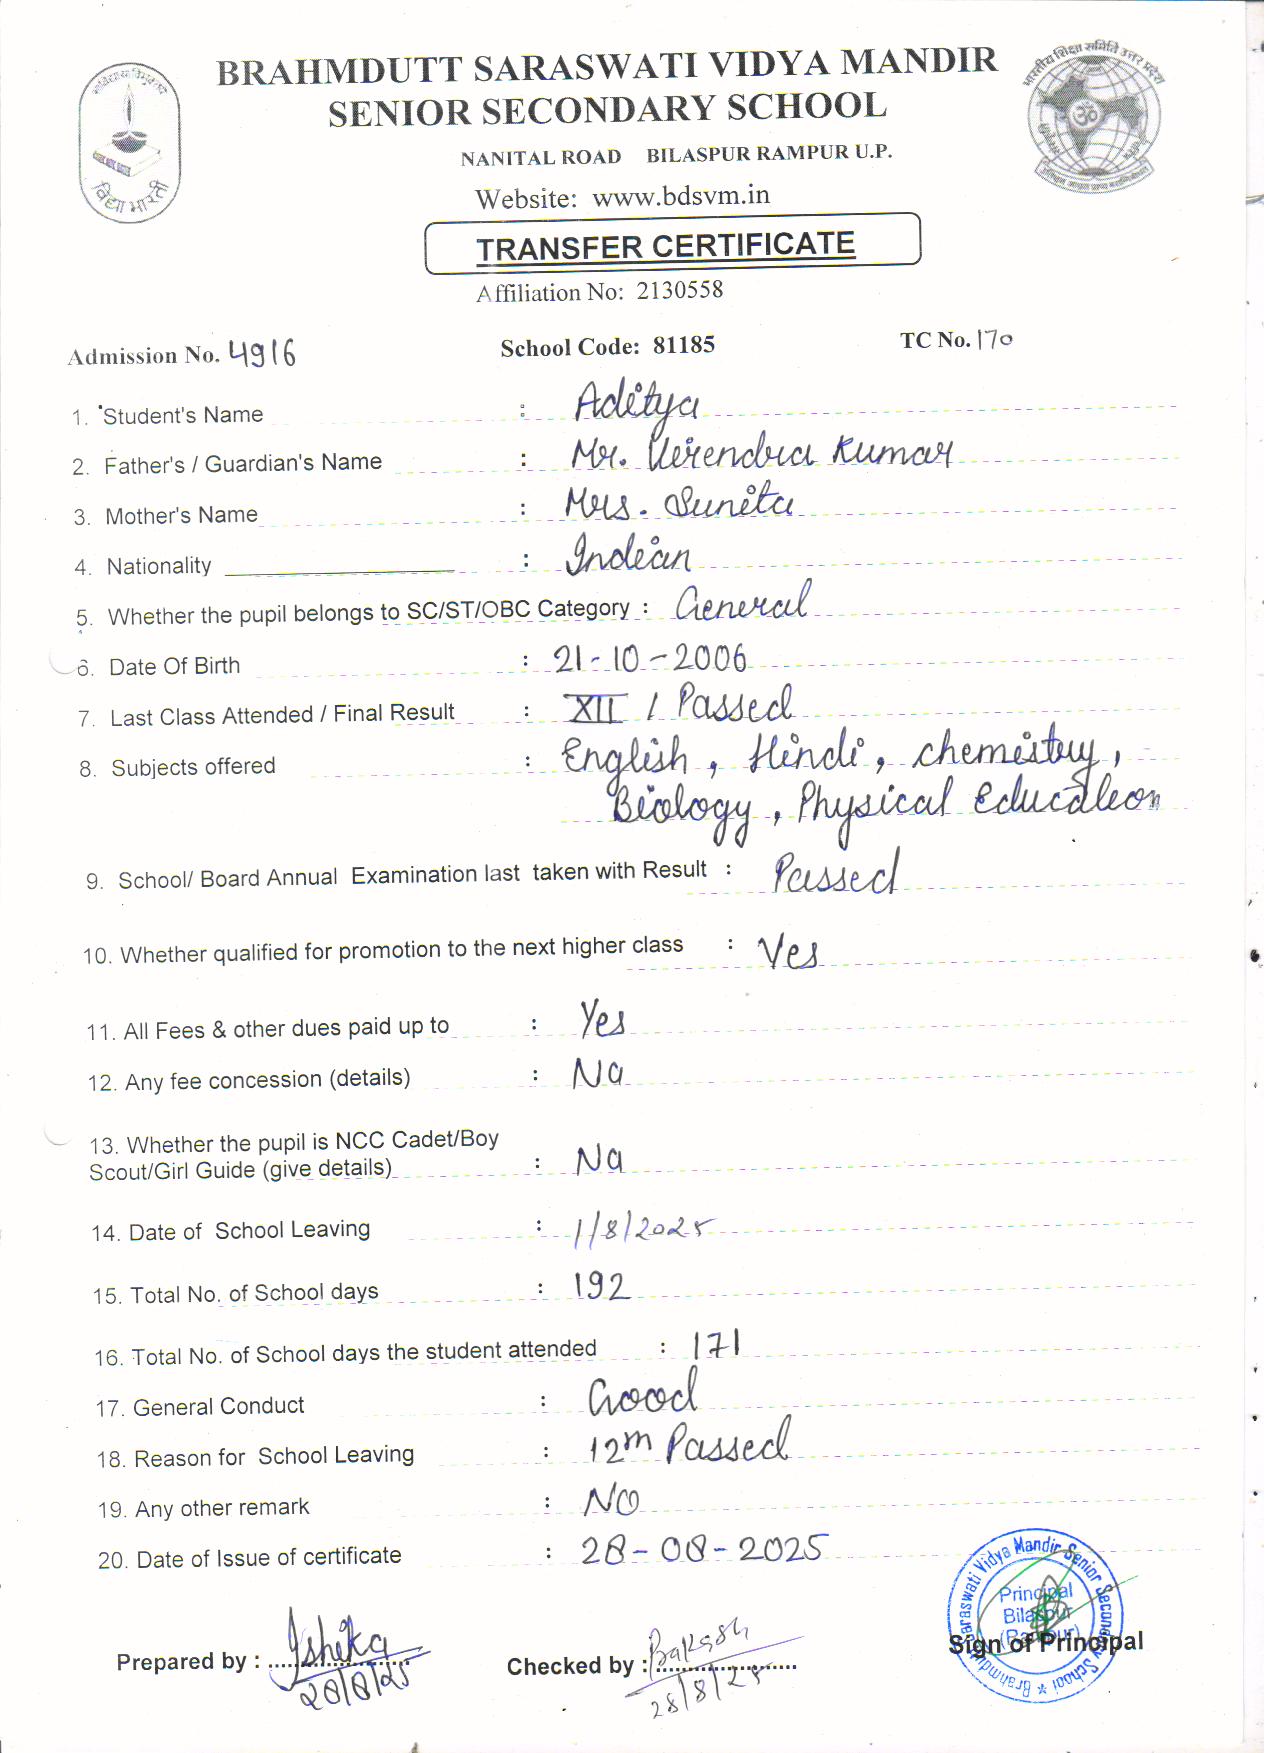 BRAHMDUTT SARASWATI VIDYA MANDIR
SENIOR SECONDARY SCHOOL
NANITAL ROAD BILASPUR RAMPUR U.P.
Website: www.bdsvm.in
विद्या भारती
भारतीय शिक्षा समिति उत्तर प्रदेश
TRANSFER CERTIFICATE
Affiliation No: 2130558
Admission No. 4916 School Code: 81185 TC No. 170
1. Student's Name : Aditya
2. Father's / Guardian's Name : Mr. Virendra Kumar
3. Mother's Name : Mrs. Sunita
4. Nationality : Indian
5. Whether the pupil belongs to SC/ST/OBC Category : General
6. Date Of Birth : 21-10-2006
7. Last Class Attended / Final Result : XII / Passed
8. Subjects offered : English, Hindi, chemistry,
Biology, Physical Education
9. School/ Board Annual Examination last taken with Result : Passed
10. Whether qualified for promotion to the next higher class : Yes
11. All Fees & other dues paid up to : Yes
12. Any fee concession (details) : Na
13. Whether the pupil is NCC Cadet/Boy
Scout/Girl Guide (give details) : Na
14. Date of School Leaving : 1/8/2025
15. Total No. of School days : 192
16. Total No. of School days the student attended : 171
17. General Conduct : Good
18. Reason for School Leaving : 12th Passed
19. Any other remark : NO
20. Date of Issue of certificate : 28-08-2025
Brahmdutt Saraswati Vidya Mandir Senior Secondary School *
Principal
Bilaspur
(Rampur)
Prepared by : Ishika Checked by : Sign of Principal
28/8/25 28/8/25